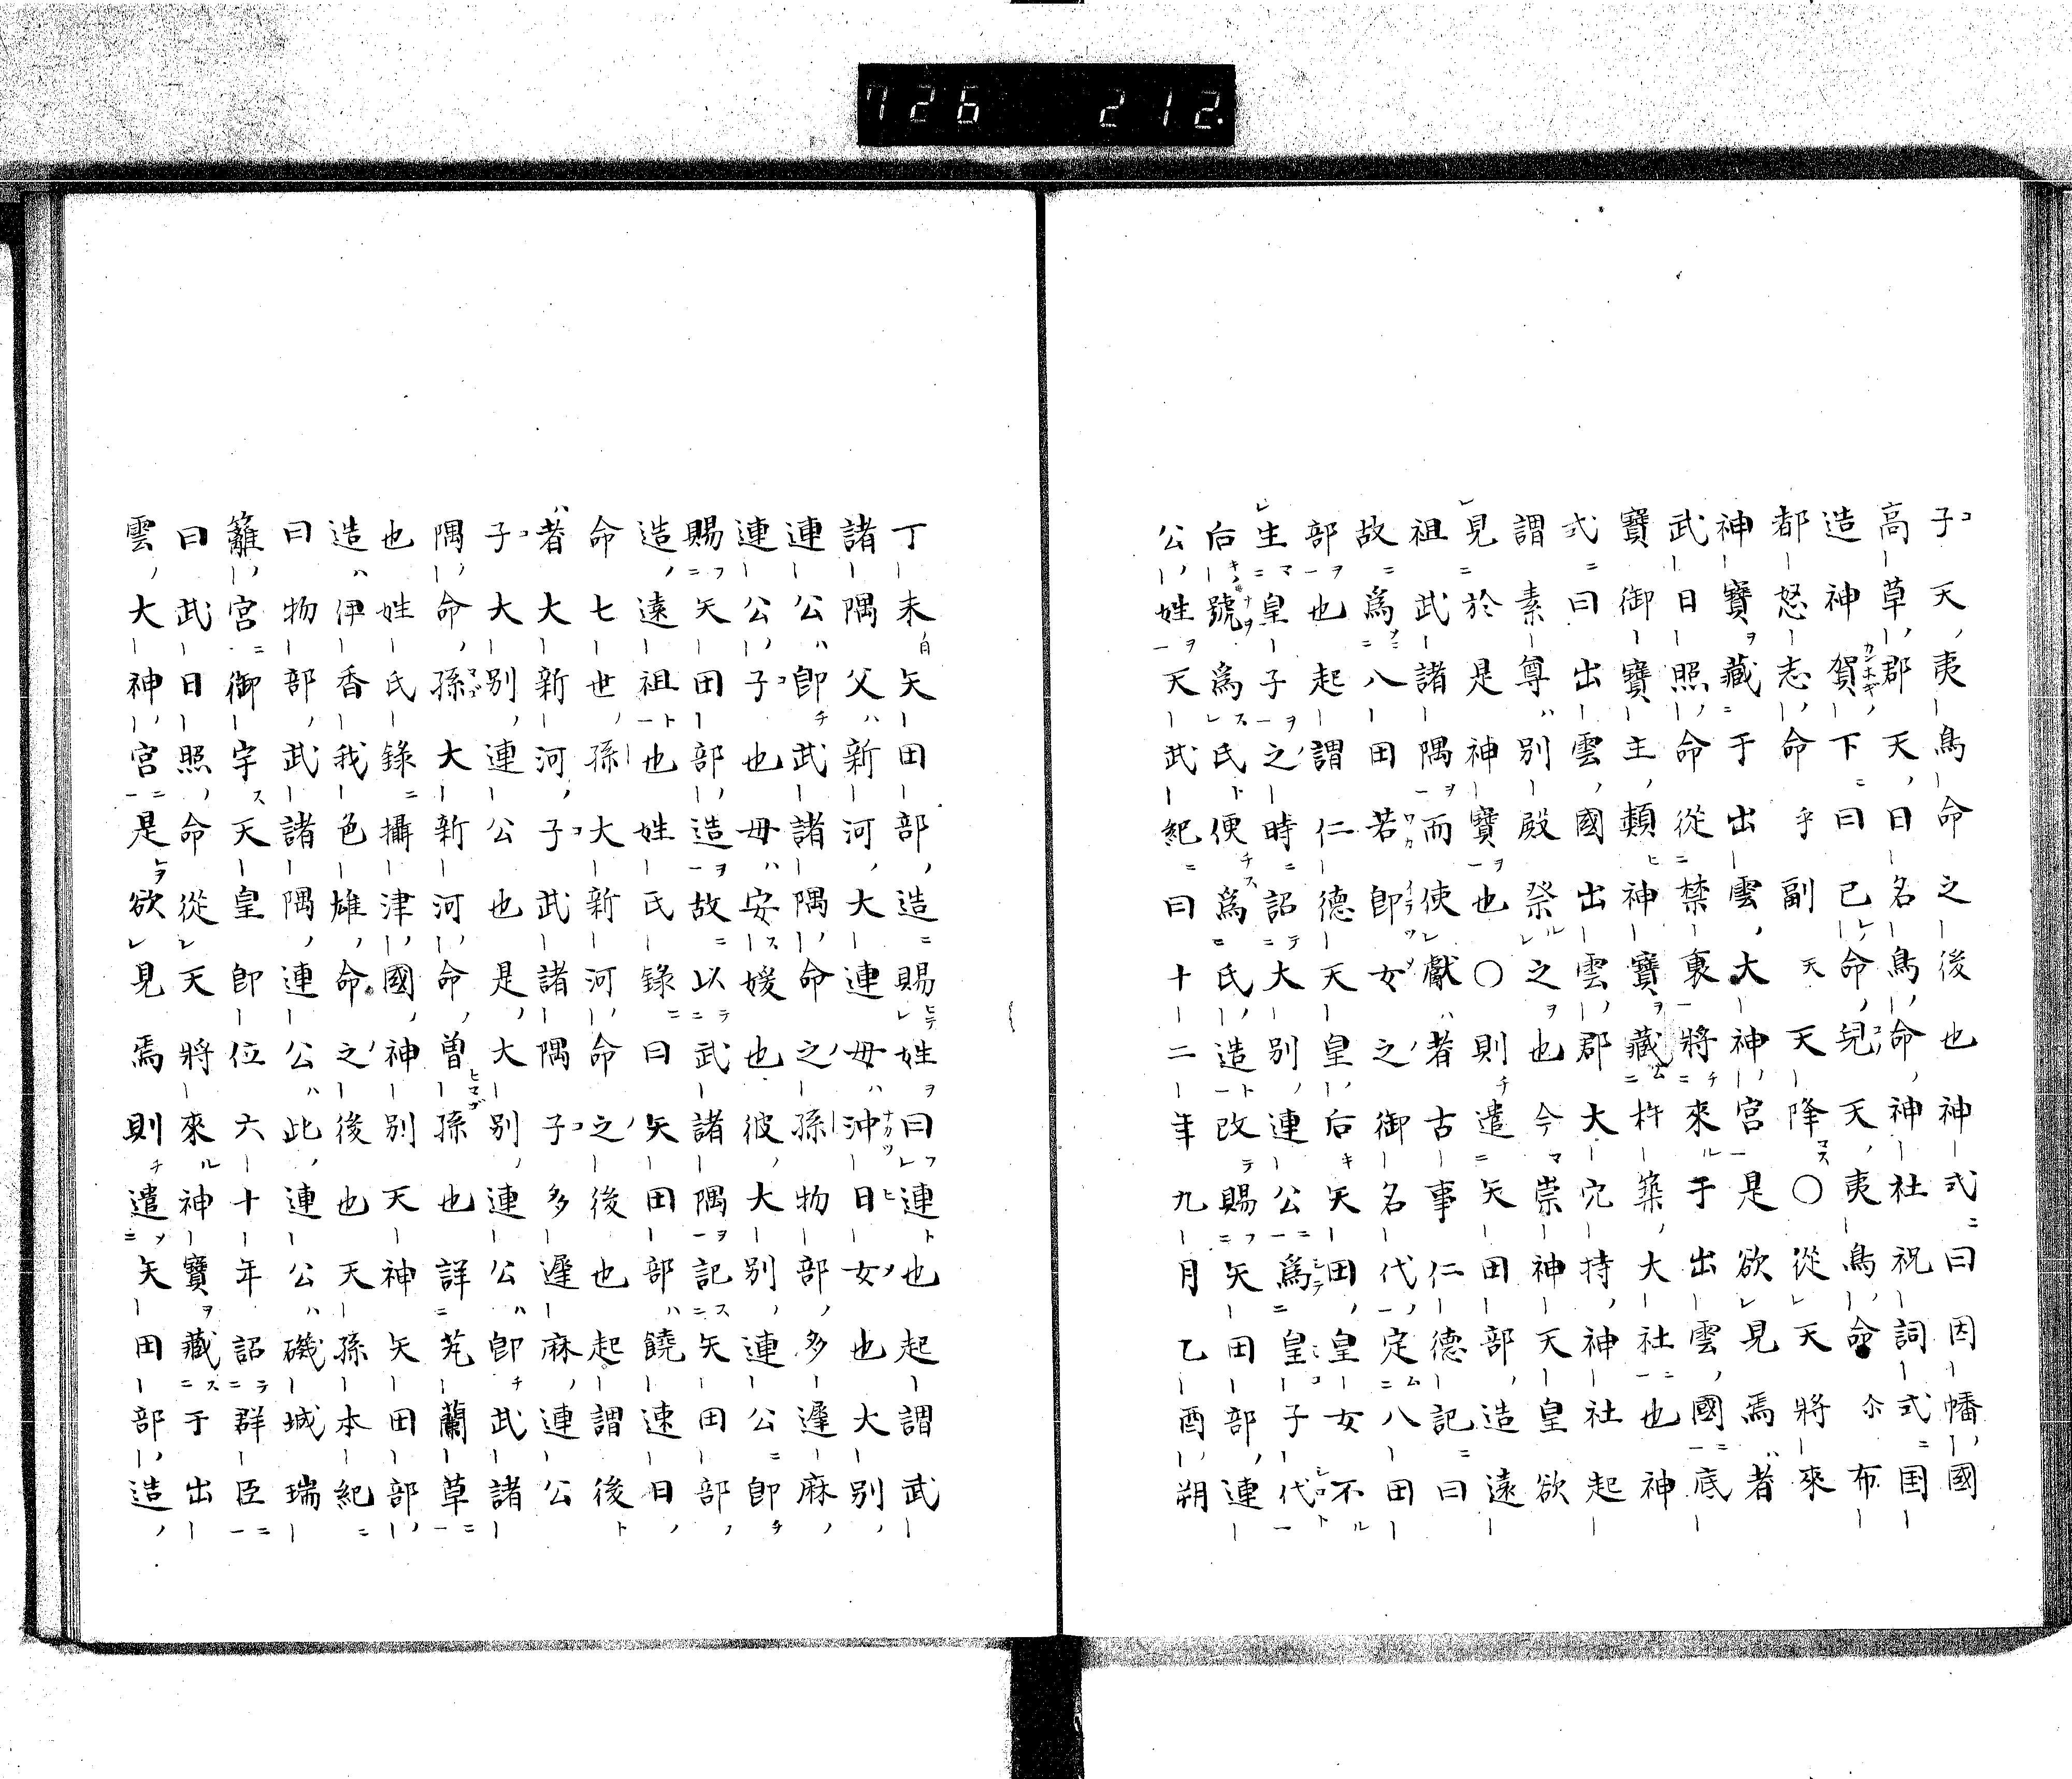 726 212.
子天夷鳥命之後也神式曰因幡國
高草郡天日名鳥命神社祝詞式国
造神賀下曰己命兒天夷鳥命尒布
都怒志命乎副天天降〇從天將來
神寶藏于出雲大神宮是欲見焉者
武日照命從禁裏將來于出雲國底
寶御寶主類神寶藏杵築大社也神
式曰出雲國出雲郡大穴持神社起
謂素尊別殿祭之也今崇神天皇欲
見於是神寶也〇則遣矢田部造遠
祖武諸隅而使獻者古事仁德記曰
故爲八田若郎女之御名代定八田
部也起謂仁德天皇后矢田皇女不
生皇子之時詔大別連公爲皇子代
后號爲氏便爲氏造改賜矢田部連
公姓天武紀曰十二年九月乙酉朔
丁未矢田部造賜姓曰連也起謂武
諸隅父新河大連母沖日女也大別
連公即武諸隅命之孫物部多遲麻
連公子也母安媛也彼大別連公即
賜矢田部造故以武諸隅記矢田部
造遠祖也姓氏錄曰矢田部饒速日
命七世孫大新河命之後也起謂後
者大新河子武諸隅子多遲麻連公
子大別連公也是大別連公即武諸
隅命孫大新河命曽孫也詳芄蘭草
也姓氏錄攝津國神別天神矢田部
造伊香我色雄命之後也天孫本紀
曰物部武諸隅連公此連公磯城瑞
籬宮御宇天皇即位六十年詔群臣
曰武日照命從天將來神寶藏于出
雲大神宮是欲見焉則遣矢田部造